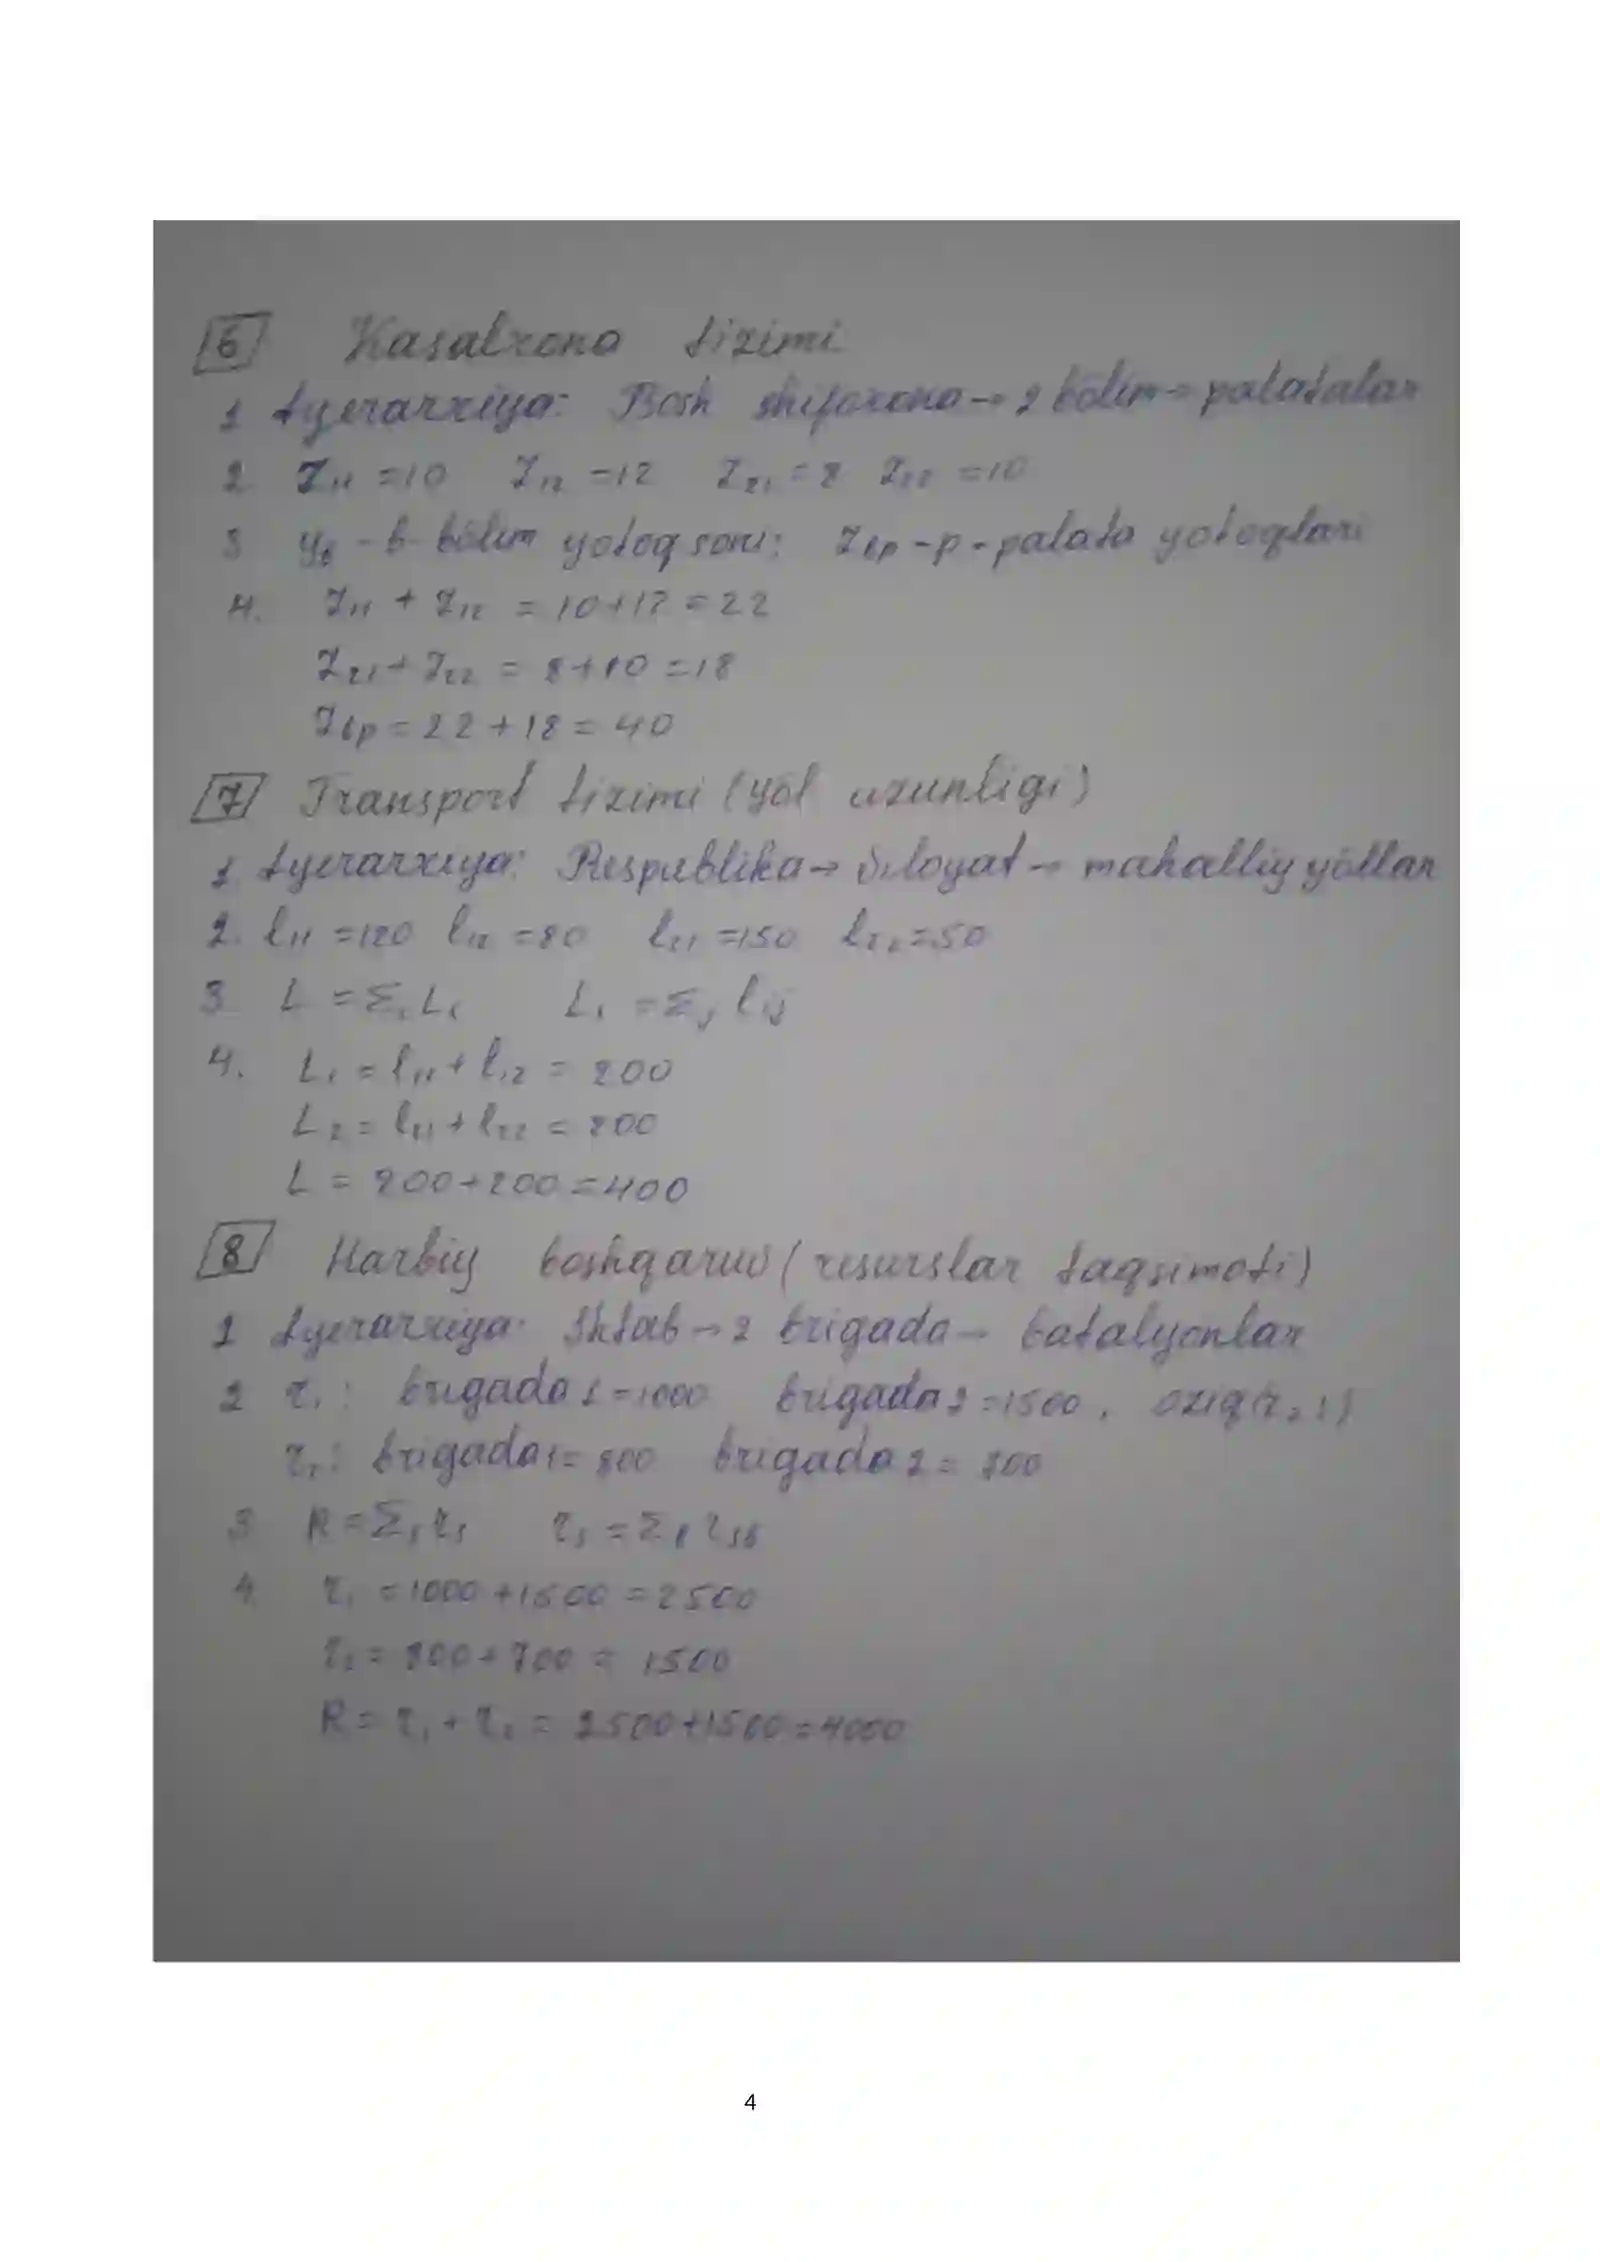 6 Kasalxona tizimi
1 Iyerarxiya: Bosh shifoxona → 2 bo'lim → palatalar
2. Z₁₁ = 10 Z₁₂ = 12 Z₂₁ = 8 Z₂₂ = 10
3 y_b - b - bo'lim yotoq soni; Z_bp - p - palata yotoqlari
4. Z₁₁ + Z₁₂ = 10+12 = 22
Z₂₁ + Z₂₂ = 8+10 = 18
Z_bp = 22 + 18 = 40
7 Transport tizimi (yo'l uzunligi)
1. Iyerarxiya: Respublika → viloyat → mahalliy yo'llar
2. l₁₁ = 120 l₁₂ = 80 l₂₁ = 150 l₂₂ = 50
3 L = Σᵢ Lᵢ Lᵢ = Σⱼ lᵢⱼ
4. L₁ = l₁₁ + l₁₂ = 200
L₂ = l₂₁ + l₂₂ = 200
L = 200 + 200 = 400
8 Harbiy boshqaruv (resurslar taqsimoti)
1 Iyerarxiya: Shtab → 2 brigada → batalyonlar
2 r₁: brigada 1 = 1000 brigada 2 = 1500, oziq (r₂:)
r₂: brigada 1 = 800 brigada 2 = 700
3 R = Σₛ rₛ rₛ = Σ_b r_sb
4. r₁ = 1000 + 1500 = 2500
r₂ = 800 + 700 = 1500
R = r₁ + r₂ = 2500 + 1500 = 4000
4